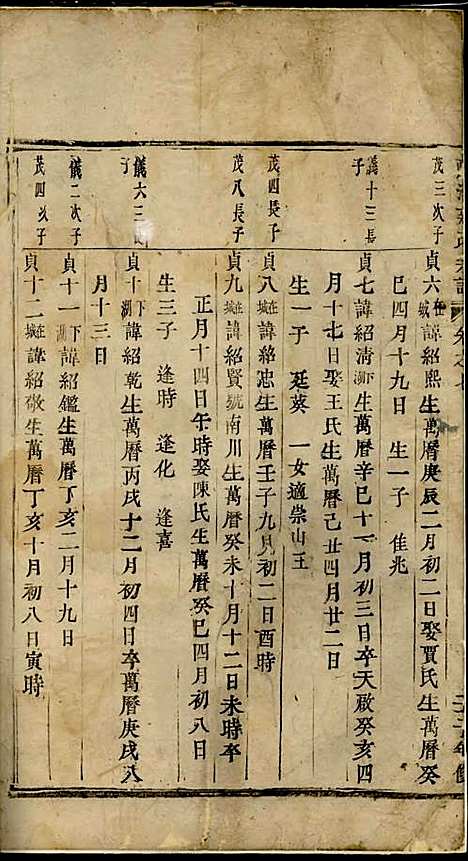 茂三次子
貞六在城諱紹熙生萬曆庚辰二月初二日娶賈氏生萬曆癸
巳四月十九日 生一子 佳兆
儀十三長子
貞七諱紹清下湖生萬曆辛巳十一月初三日卒天啟癸亥四
月十七日娶王氏生萬曆己丑四月廿二日
生一子 廷葵 一女適崇山王
茂四長子
貞八在城諱紹忠生萬曆壬子九月初二日酉時
茂八長子
貞九在城諱紹賢號南川生萬曆癸未十月十二日未時卒
正月十四日午時娶陳氏生萬曆癸巳四月初八日
生三子 逢時 逢化 逢喜
儀六三子
貞十下湖諱紹乾生萬曆丙戌十二月初四日卒萬曆庚戌八
月十三日
儀二次子
貞十一下湖諱紹鑑生萬曆丁亥二月十九日
茂四次子
貞十二在城諱紹敬生萬曆丁亥十月初八日寅時